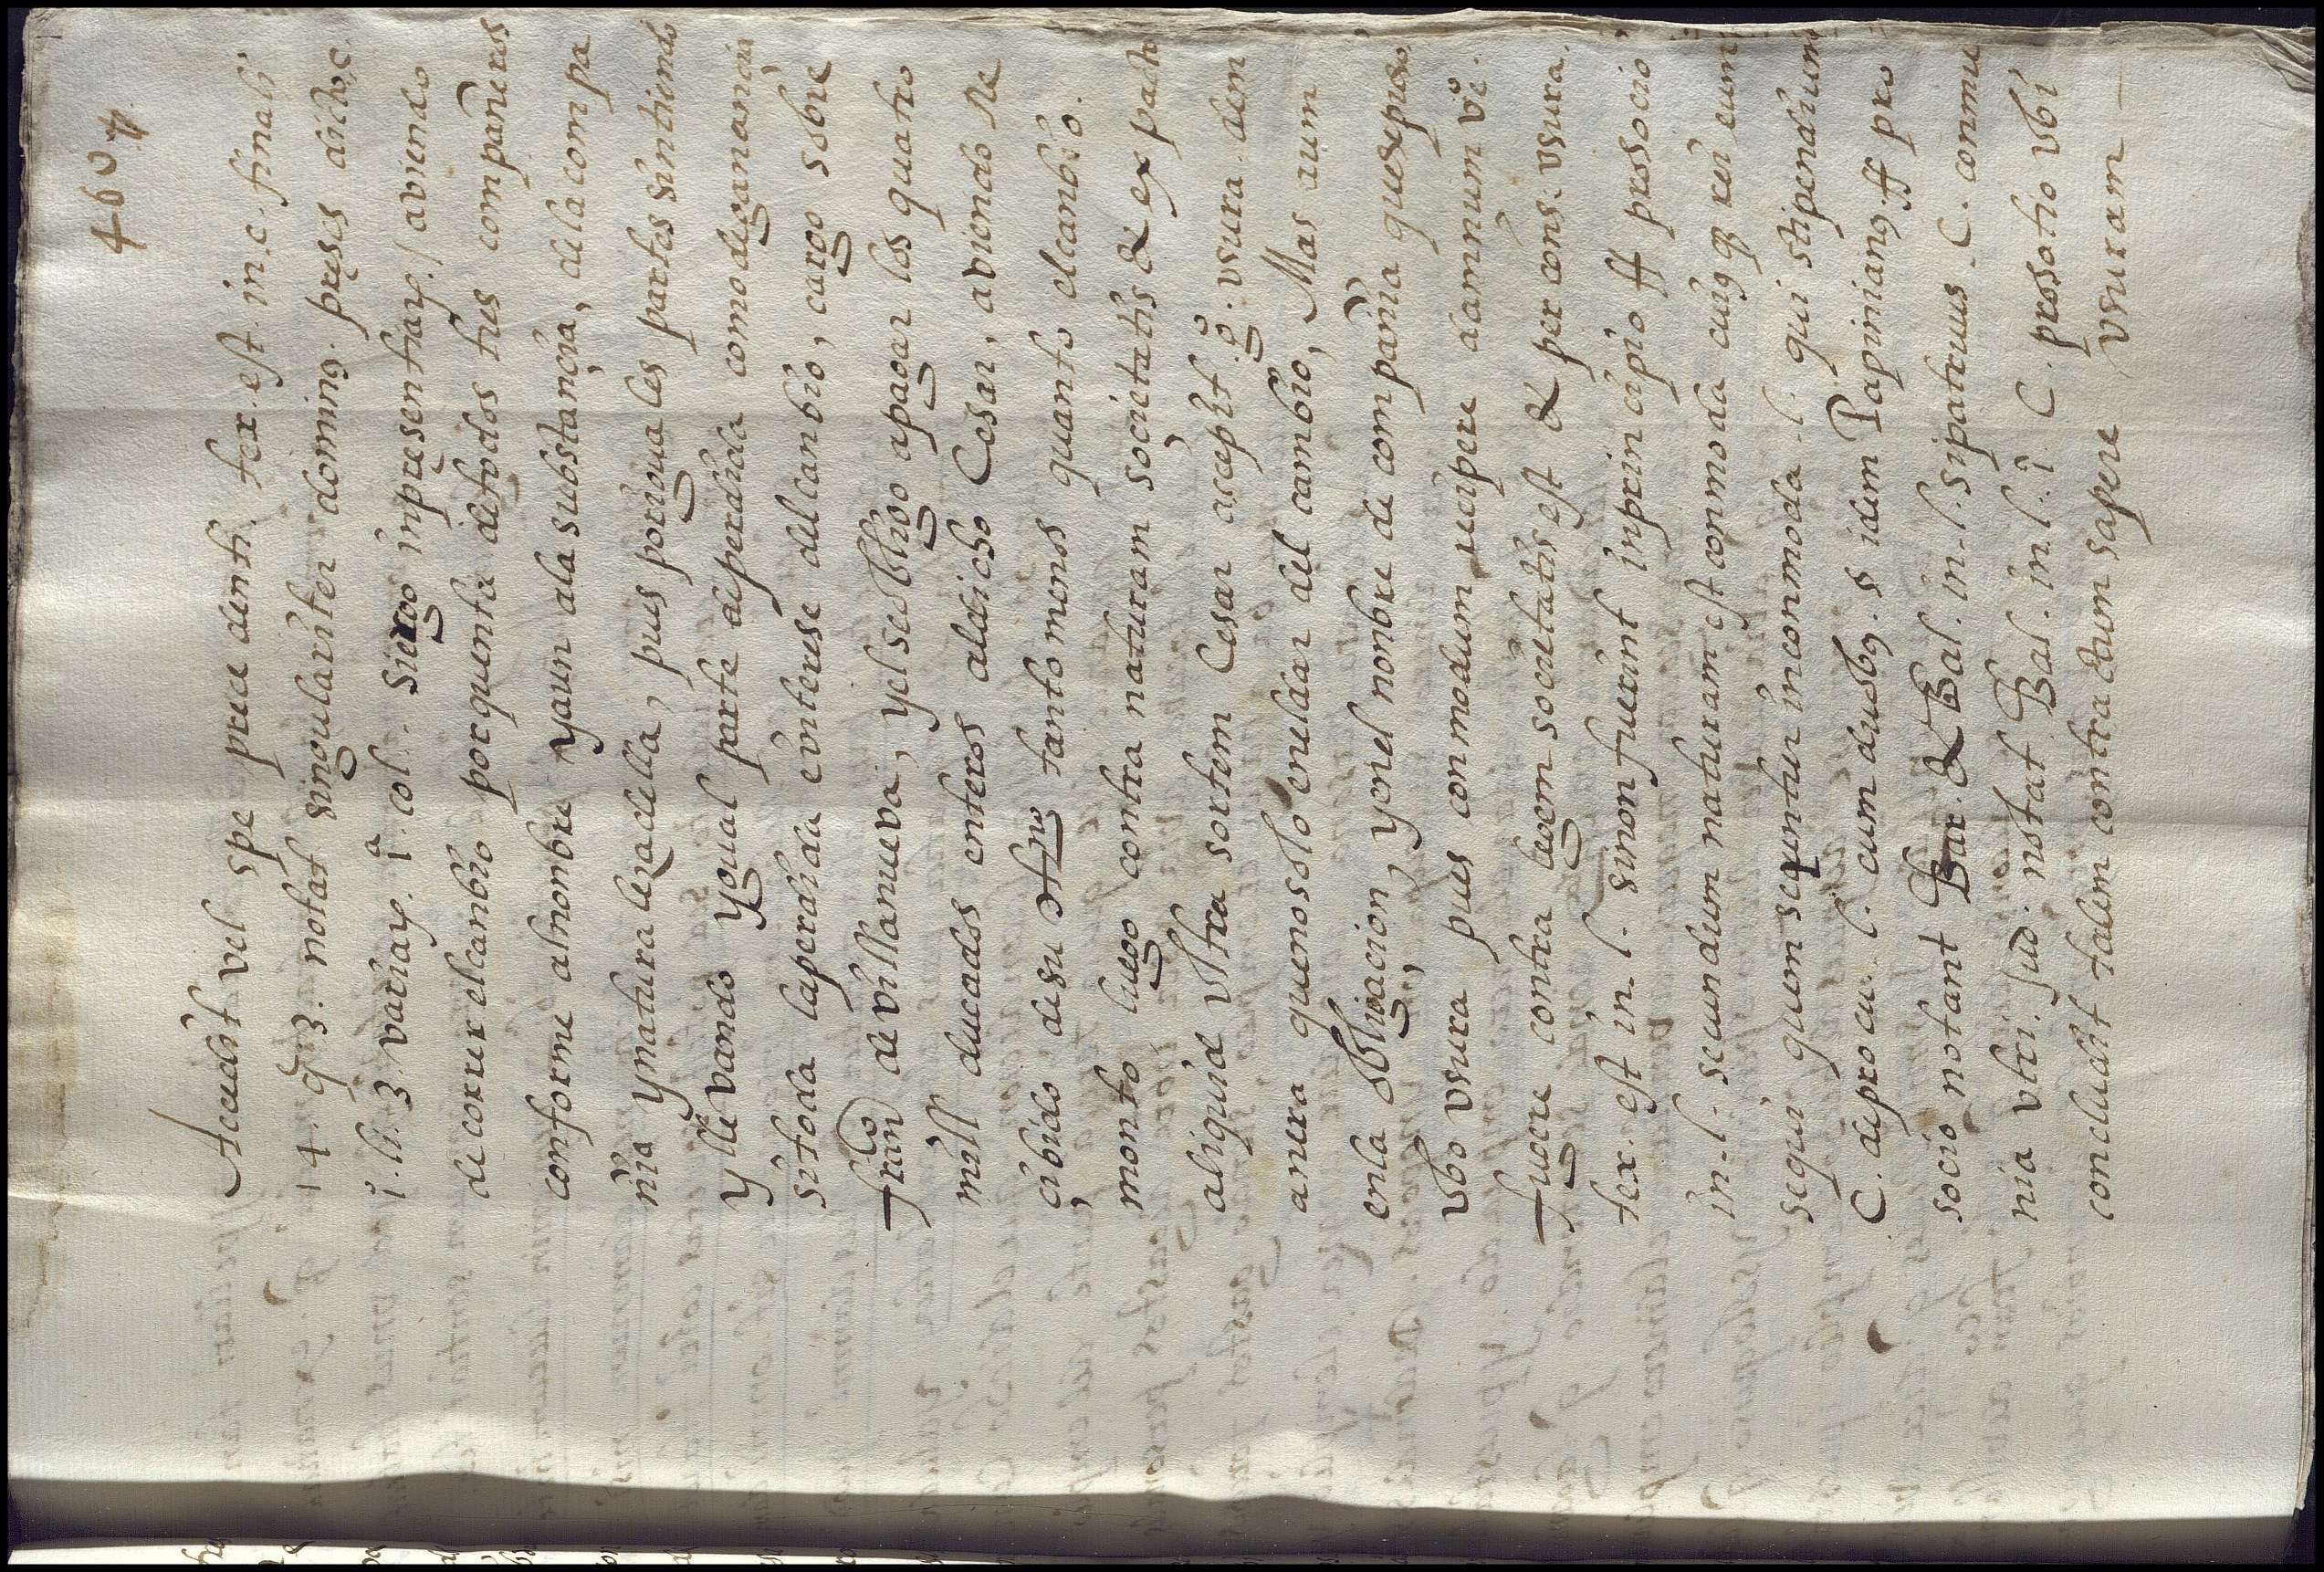 467
Accedit vel spe precedenti. tex. est. in. c. finali
14. q. 3. notat singulariter dominꝯ. preses didac
i. li. 3. variaꝝ. iª. col. siergo inpresentiaꝝ / aviendo
decorrer elcanbio porquenta detodos tres conpañeros
conforme alnonbre yaun ala substançia, dela compa
ñia ynaturaleza della, pues porigoales partes sintiendo
yllevando ygoal parte deperdida comodegananciа
setoda laperdida enterese delcanbio, cargo sobre
franco devillanueva, yelseobligo apagar los quatro
mill ducados enteros aldicho Cesar, aviendo Re
çibido desu tanto menos quanto elcanbio.
monto luego contra naturam soçietatis & ex pacto
aliquid vltra sortem Cesar accepit. gº. vsura. dem
anera quenosolo eneldar del cambio, Mas aum
enla obligaçion, yenel nonbre de compañia quesepuso
vbo vsura pues conmodum recipere damnum vº.
fugere contra legem societatis est & per cons. vsura.
tex. est in. l. sinon fuerint inprincipio ff prosocio
in. l. secundum naturam est conmoda cuiꝯqꝫ rei eum
sequi quem sequntur inconmoda. l. qui stipendium
C. deprocu. l. cum duobꝯ. § idem Papinianꝯ. ff pro
socio notant Bar. & Bal. in. l. sipatruus. C. conmu
nia vtri. Jud. notat Bal. in. l. i. C. prosotio vbi
concludit talem contractum sapere vsuram